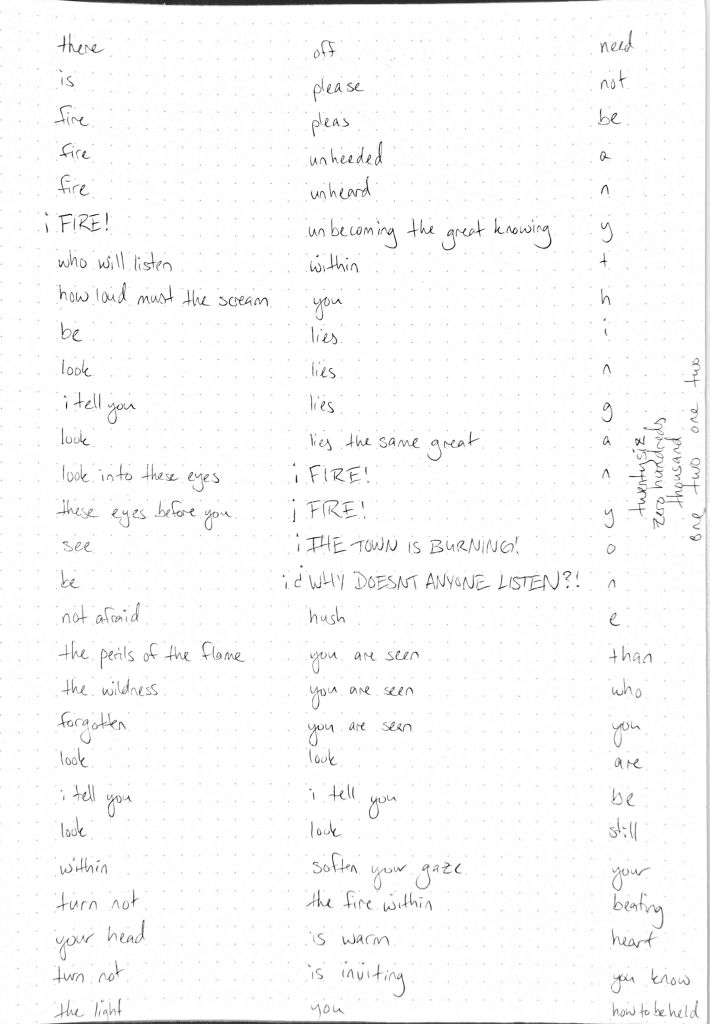 there
is
fire
fire
fire
¡FIRE!
who will listen
how loud must the scream
be
look
i tell you
look
look into these eyes
these eyes before you
see
be
not afraid
the perils of the flame
the wildness
forgotten
look
i tell you
look
within
turn not
your head
turn not
the light
off
please
pleas
unheeded
unheard
unbecoming the great knowing
within
you
lies
lies
lies
lies the same great
¡FIRE!
¡FIRE!
¡THE TOWN IS BURNING!
¡¿WHY DOESNT ANYONE LISTEN?!
hush
you are seen
you are seen
you are seen
look
i tell you
look
soften your gaze
the fire within
is warm
is inviting
you
need
not
be
a
n
y
t
h
i
n
g
a
n
y
o
n
e
than
who
you
are
be
still
your
beating
heart
you know
how to be held
twentysix
zero hundreds
thousand
one two one two